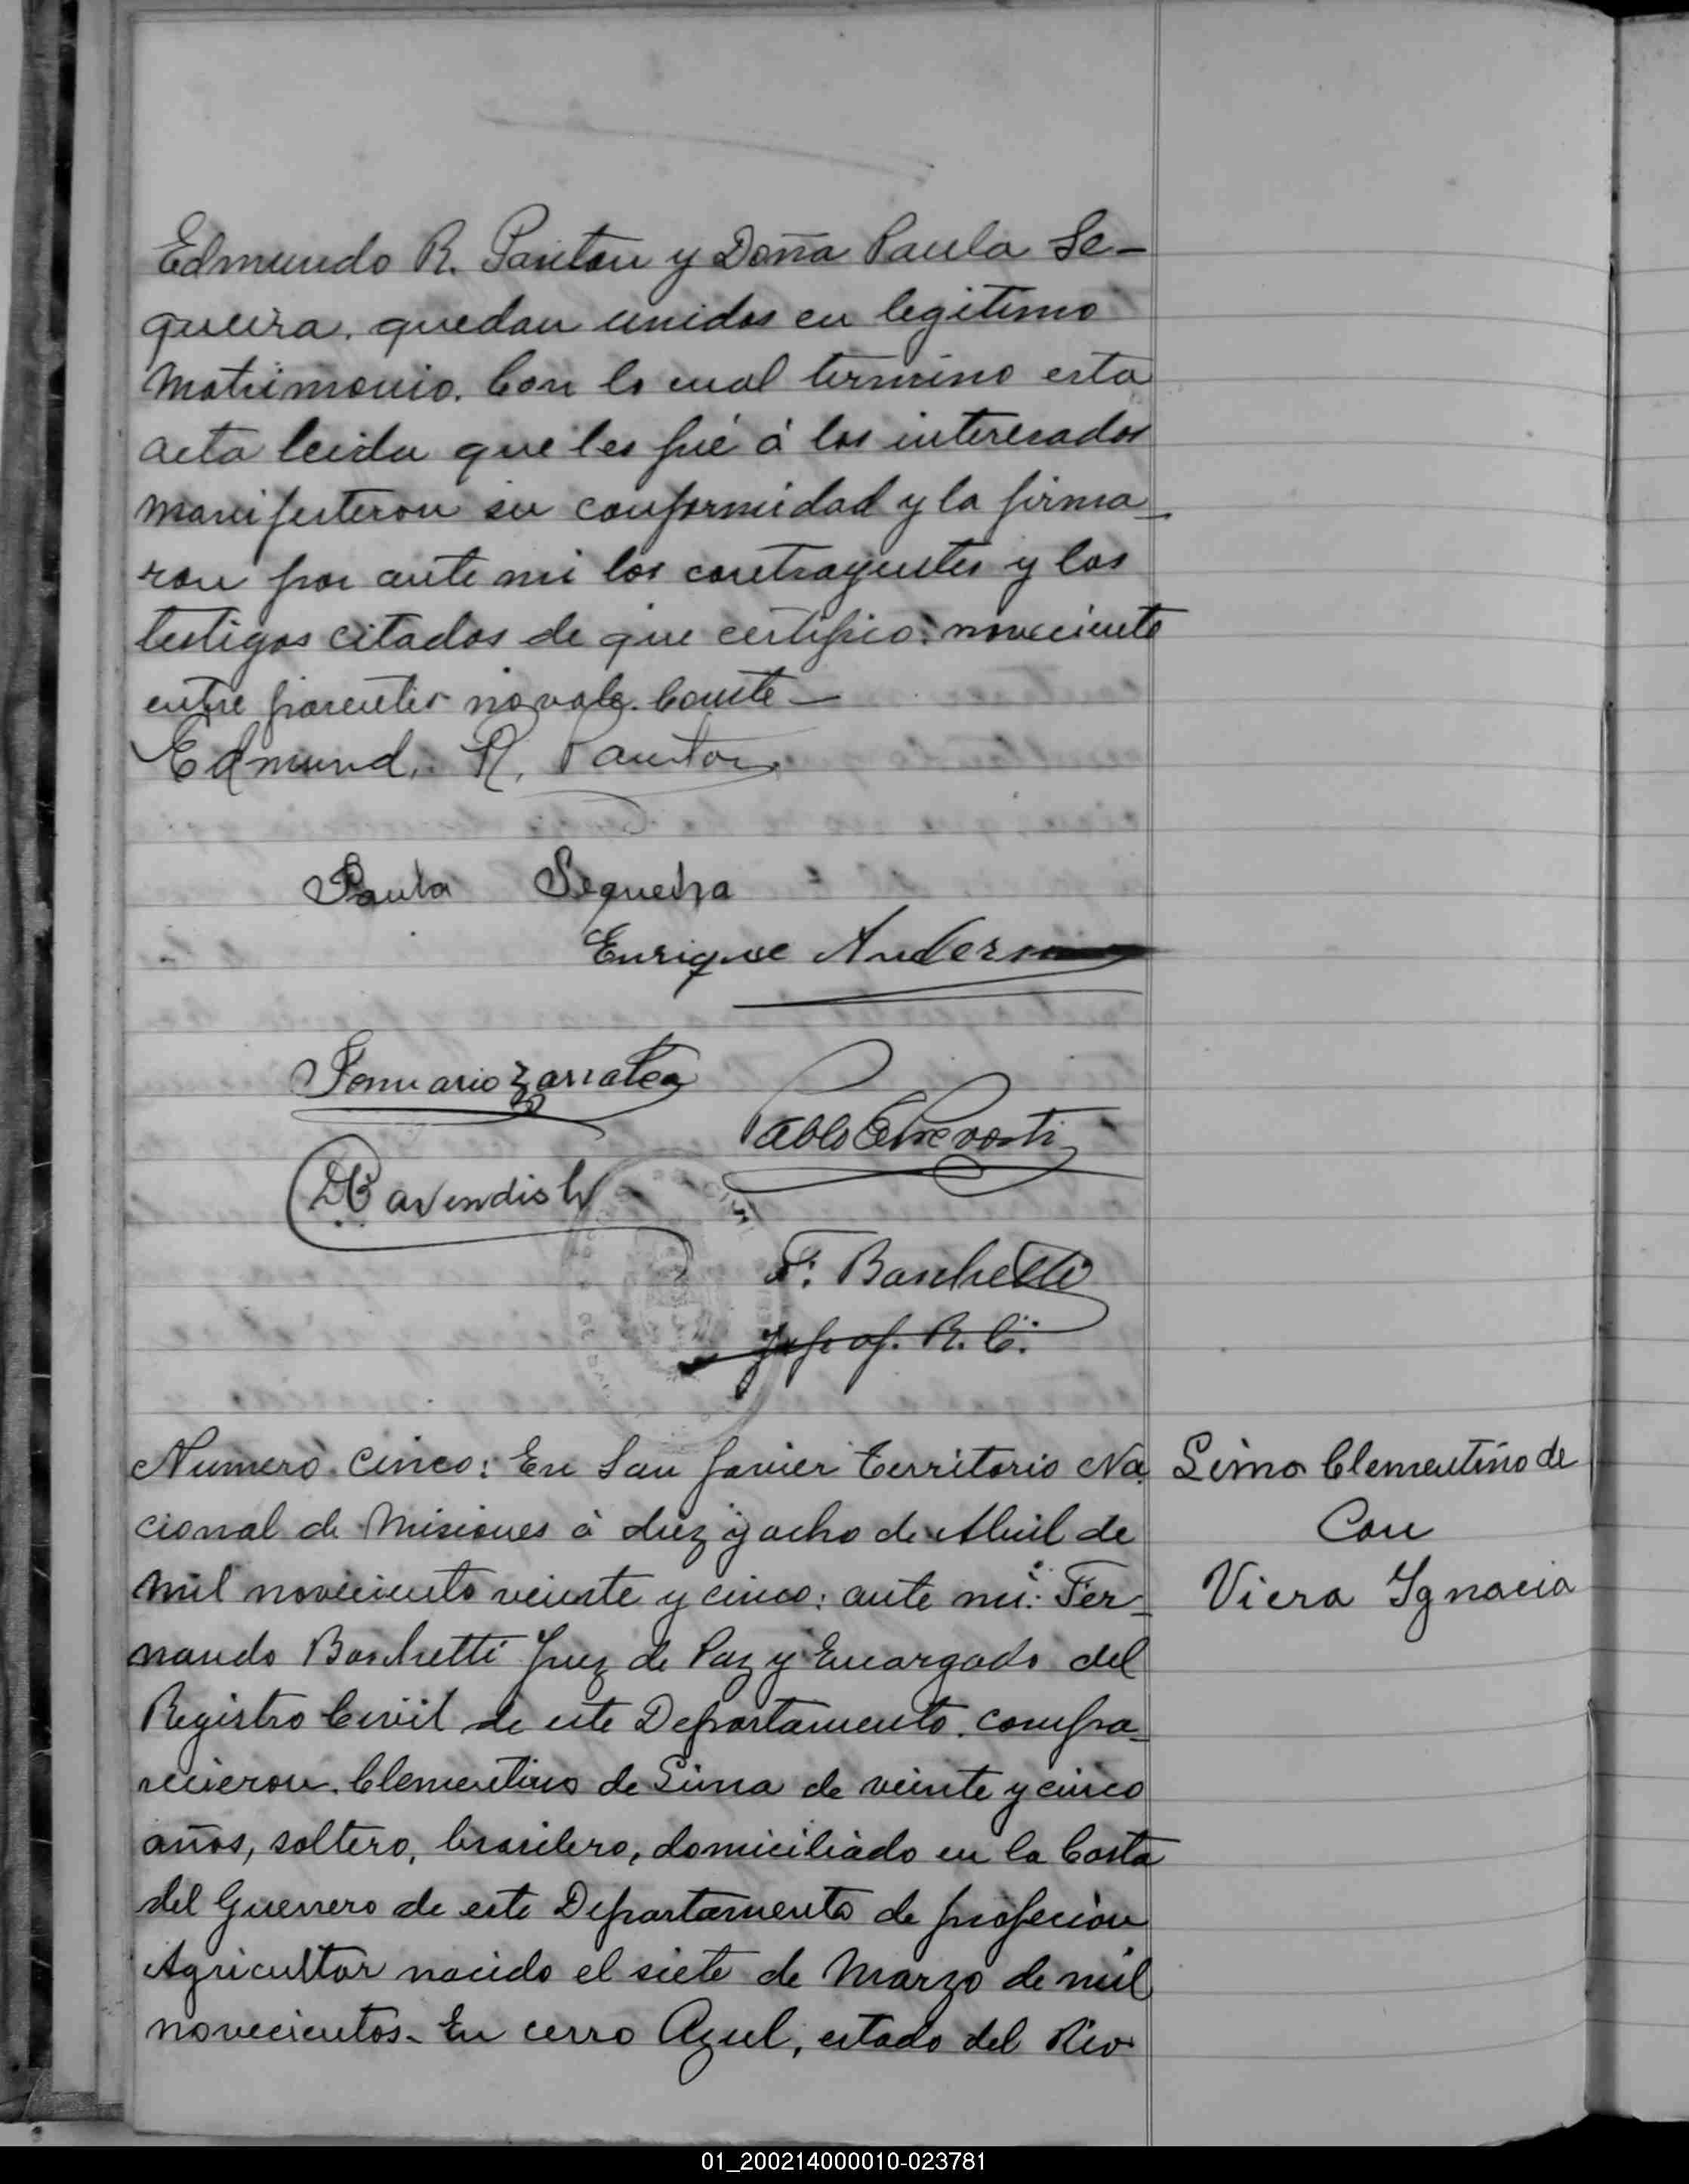 Edmundo R. Panton y Doña Paula Se-
queira. quedan unidos en legitimo
Matrimonio. Con lo cual termino esta
acta leida que les fué á los interesados
manifesteron su conformidad y la firma-
ron por ante mi los contrayentes y los
testigos citados de que certifico: noveciento
entre parentesis no vale. Conste-
Edmund. R. Panton
Paula Sequeira
Enrique Anderson
Jenuario Zarratea
Pablo
D Cavendish
F. Boschetti
R. C.
Numero cinco: En San Javier Territorio Na-
cional de Misiones á diez y ocho de Abril de
mil noveciento veinte y cinco: ante mi: Fer-
nando Boschetti Juez de Paz y Encargado del
Registro Civil de este Departamento. compa-
recieron. Clementino de Lima de veinte y cinco
años, soltero, brasilero, domiciliado en la Costa
del Guerrero de este Departamento de profecion
Agricultor nacido el siete de Marzo de mil
novecientos. En cerro Azul, estado del Rio
Lima Clementino de
Con
Viera Ignacia
01_200214000010-023781